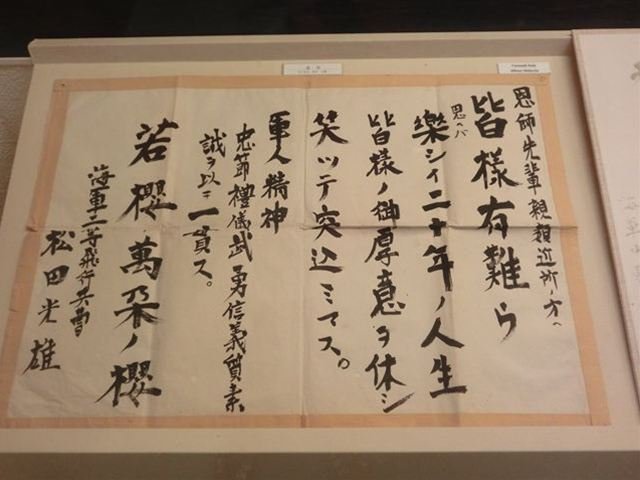 恩師先輩親類近所ノ方へ
皆様有難ウ
思ヘバ
樂シイ二十年ノ人生
皆様ノ御厚意ヲ休シ
笑ッテ突込ミマス。
軍人精神
忠節禮儀武勇信義質素
誠ヲ以ニ一貫ス。
若櫻萬朶ノ櫻
海軍二等飛行兵曹
松田光雄
遺書
Farewell Note